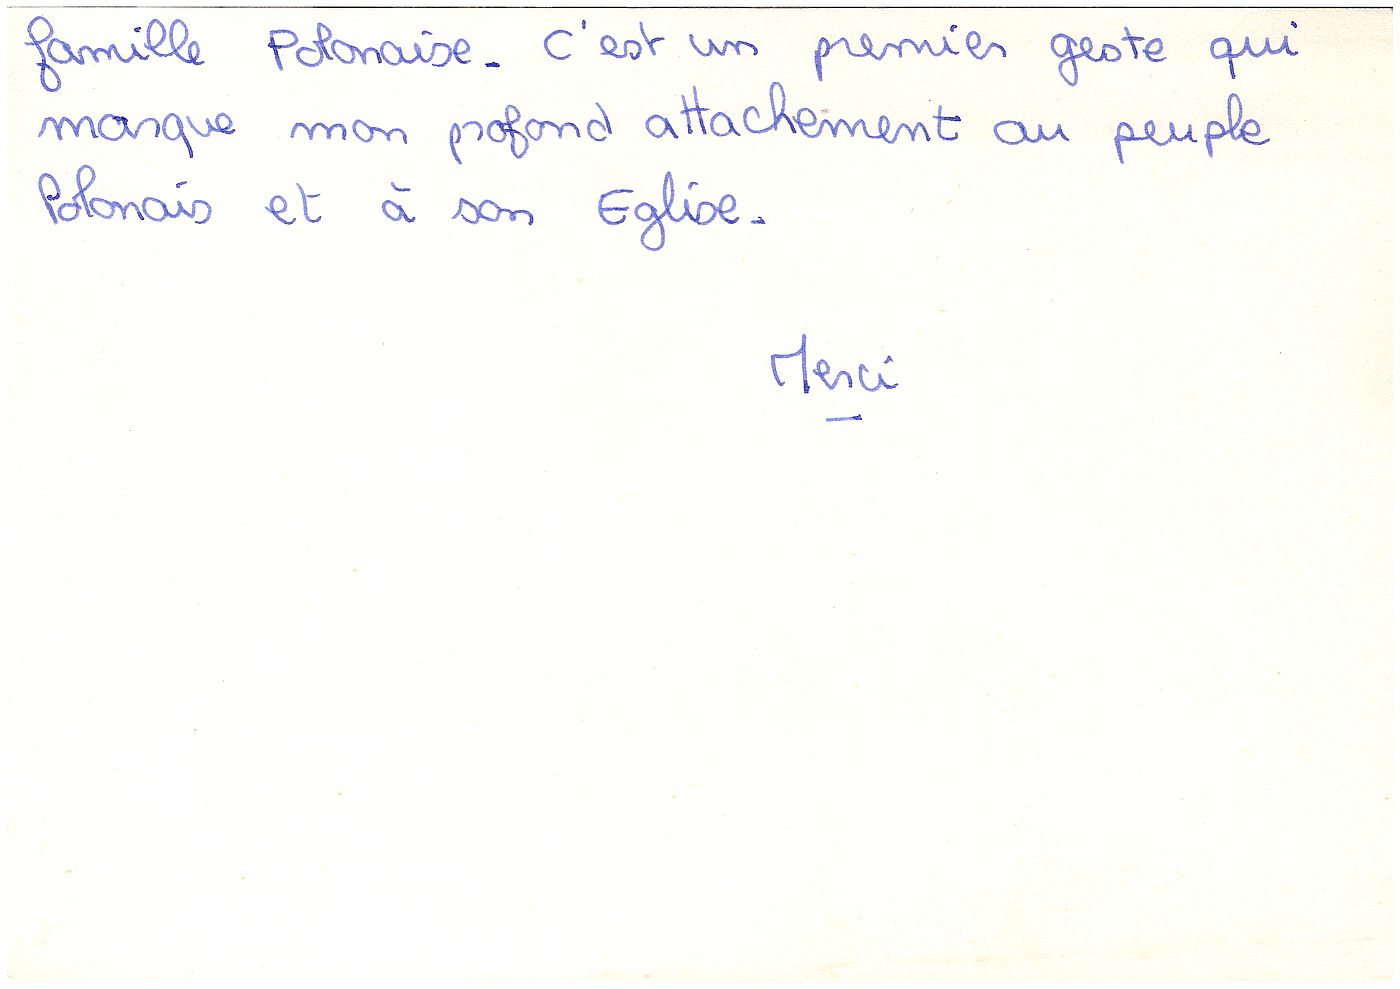 famille Polonaise. C'est un premier geste qui
marque mon profond attachement au peuple
Polonais et à son Eglise.
Merci